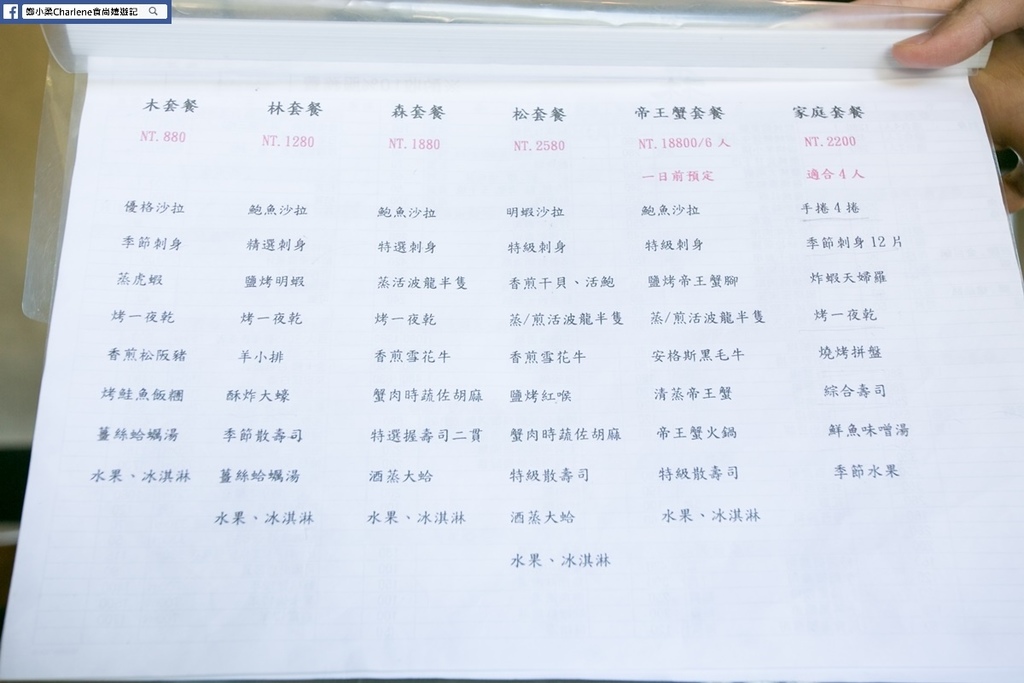 鄭小柔Charlene食尚嬉遊記
木套餐
NT.880
優格沙拉
季節刺身
蒸虎蝦
烤一夜乾
香煎松阪豬
烤鮭魚飯糰
薑絲蛤蠣湯
水果、冰淇淋
林套餐
NT.1280
鮑魚沙拉
精選刺身
鹽烤明蝦
烤一夜乾
羊小排
酥炸大蠔
季節散壽司
薑絲蛤蠣湯
水果、冰淇淋
森套餐
NT.1880
鮑魚沙拉
特選刺身
蒸活波龍半隻
烤一夜乾
香煎雪花牛
蟹肉時蔬佐胡麻
特選握壽司二貫
酒蒸大蛤
水果、冰淇淋
松套餐
NT.2580
明蝦沙拉
特級刺身
香煎干貝、活鮑
蒸/煎活波龍半隻
香煎雪花牛
鹽烤紅喉
蟹肉時蔬佐胡麻
特級散壽司
酒蒸大蛤
水果、冰淇淋
帝王蟹套餐
NT.18800/6人
一日前預定
鮑魚沙拉
特級刺身
鹽烤帝王蟹腳
蒸/煎活波龍半隻
安格斯黑毛牛
清蒸帝王蟹
帝王蟹火鍋
特級散壽司
水果、冰淇淋
家庭套餐
NT.2200
適合4人
手捲4捲
季節刺身12片
炸蝦天婦羅
烤一夜乾
燒烤拼盤
綜合壽司
鮮魚味噌湯
季節水果